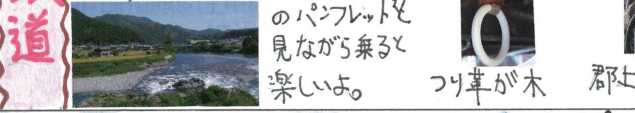 道
のパンフレットを
見ながら乗ると
楽しいよ。
つり革が木
郡上